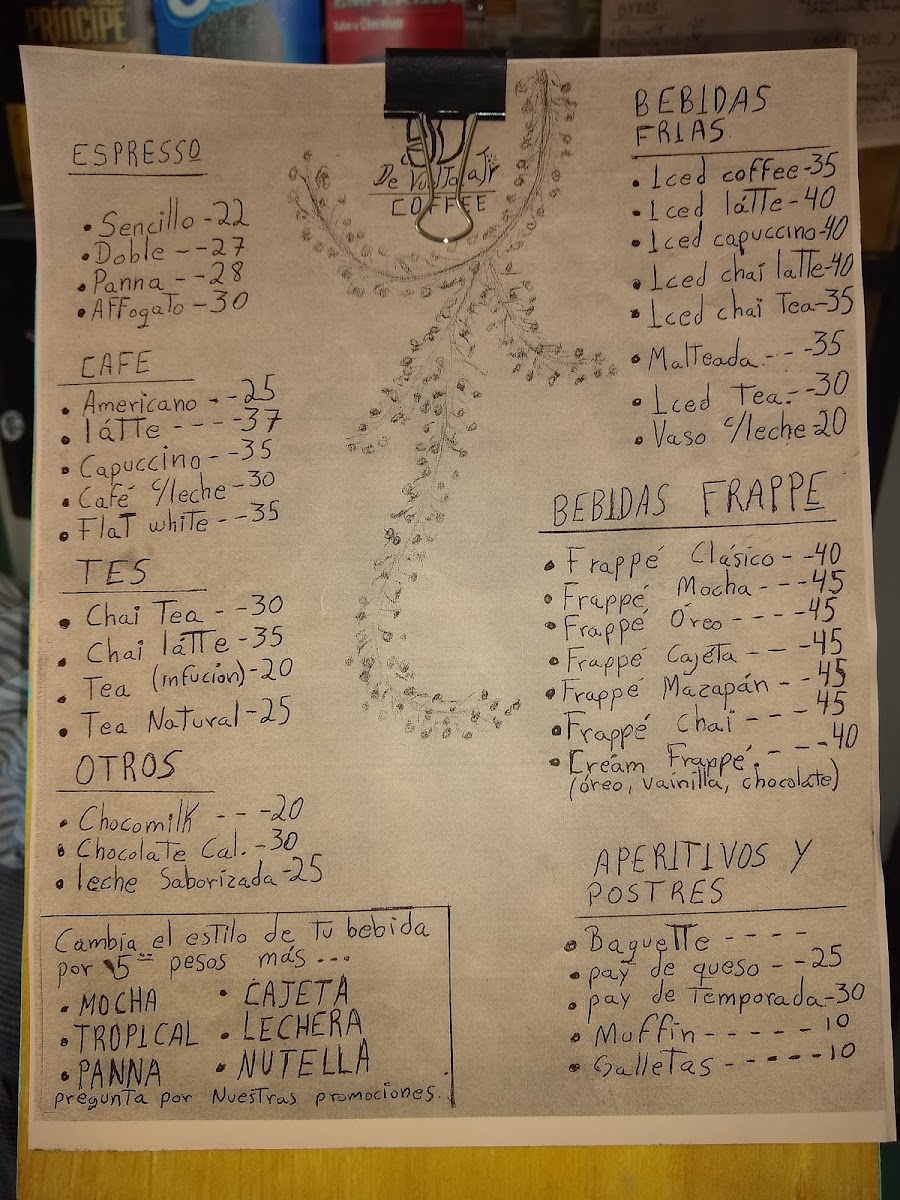 PRÍNCIPE
De
COFFEE
ESPRESSO
• Sencillo - 22
• Doble - - 27
• Panna - - 28
• Affogato - 30
CAFE
• Americano - - 25
• látte - - - - 37
• Capuccino - - 35
• Café c/leche - 30
• Flat white - - 35
TES
• Chai Tea - - 30
• Chai látte - 35
• Tea (infución) - 20
• Tea Natural - 25
OTROS
• Chocomilk - - - 20
• Chocolate Cal. - 30
• leche Saborizada - 25
Cambia el estilo de tu bebida
por 5 pesos más ...
• MOCHA
• TROPICAL
• PANNA
• CAJETA
• LECHERA
• NUTELLA
pregunta por Nuestras promociones.
BEBIDAS
FRIAS.
• Iced coffee - 35
• Iced látte - 40
• Iced capuccino - 40
• Iced chai latte - 40
• Iced chai Tea - 35
• Malteada - - - 35
• Iced Tea. - - 30
• Vaso c/leche - 20
BEBIDAS FRAPPE
• Frappé Clásico - - 40
• Frappé Mocha - - - 45
• Frappé Óreo - - - - 45
• Frappé Cajéta - - - 45
• Frappé Mazapán - - 45
• Frappé Chai - - - 45
• Cream Frappé. - - - 40
(óreo, vainilla, chocolate)
APERITIVOS Y
POSTRES
• Baguette - - - -
• pay de queso - - 25
• pay de Temporada - 30
• Muffin - - - - - 10
• Galletas - - - - - 10